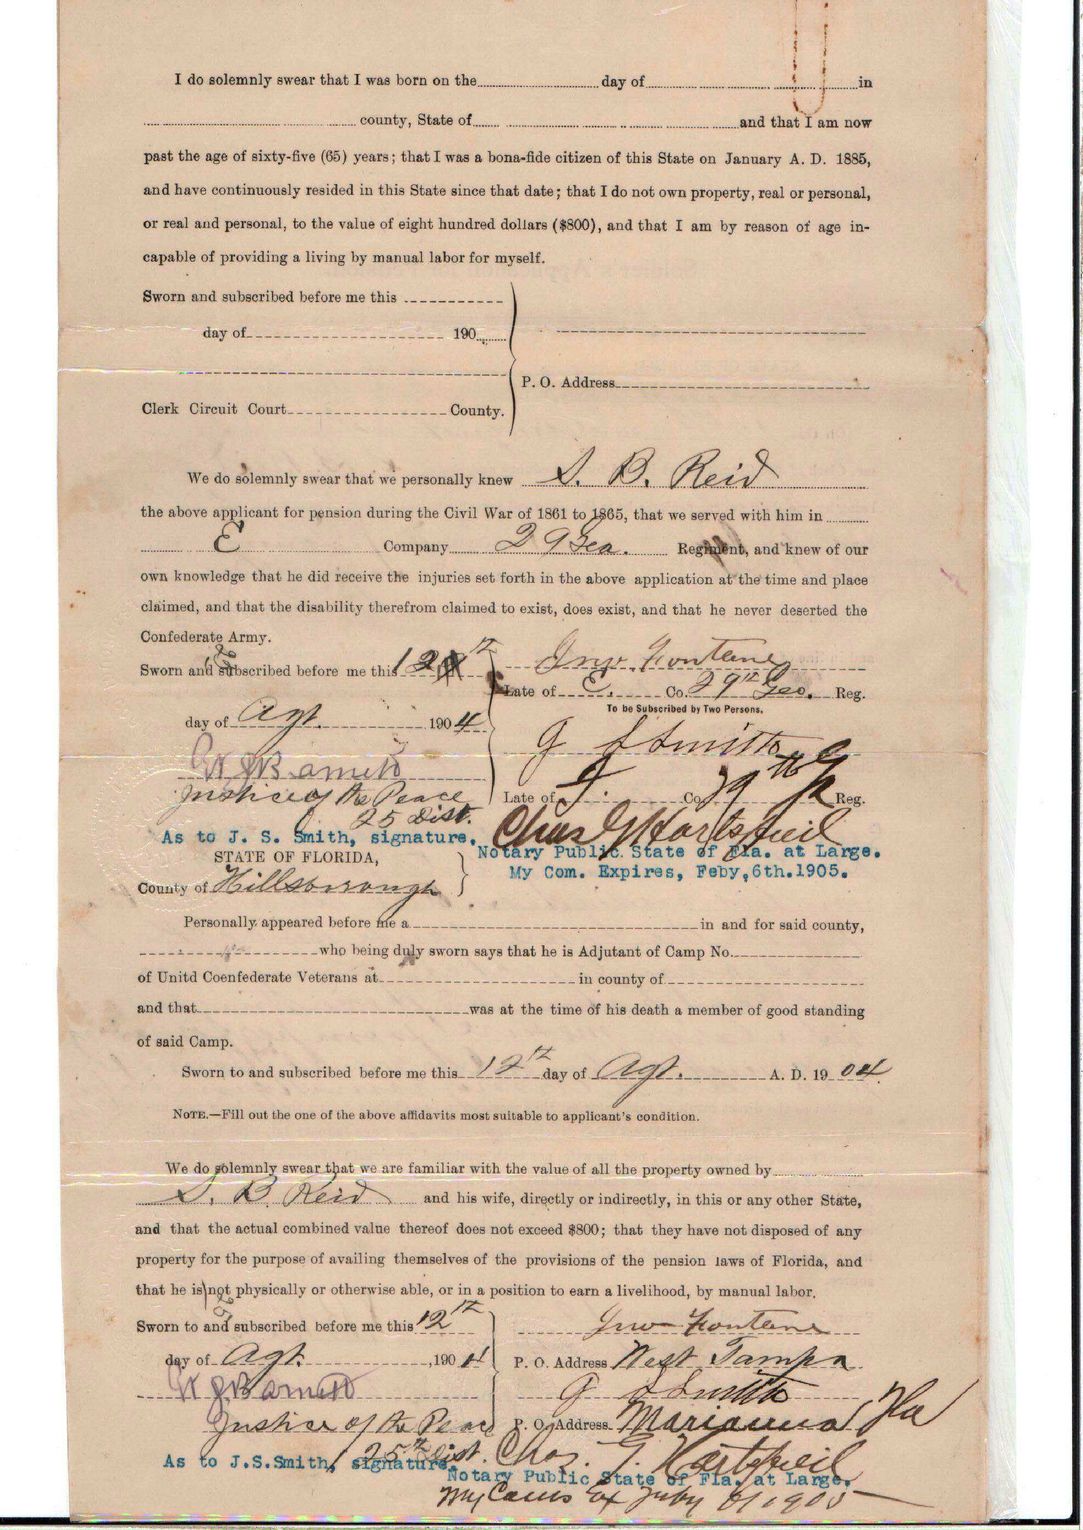 I do solemnly swear that I was born on the day of in
county, State of and that I am now
past the age of sixty-five (65) years; that I was a bona-fide citizen of this State on January A. D. 1885,
and have continuously resided in this State since that date; that I do not own property, real or personal,
or real and personal, to the value of eight hundred dollars ($800), and that I am by reason of age in-
capable of providing a living by manual labor for myself.
Sworn and subscribed before me this
day of 190
P. O. Address
Clerk Circuit Court County.
We do solemnly swear that we personally knew S. B. Reid
the above applicant for pension during the Civil War of 1861 to 1865, that we served with him in
E Company 29 Gea. Regiment, and knew of our
own knowledge that he did receive the injuries set forth in the above application at the time and place
claimed, and that the disability therefrom claimed to exist, does exist, and that he never deserted the
Confederate Army.
Sworn and subscribed before me this 12th
Jno. Fontane
Late of E. Co. 29th Geo. Reg.
To be Subscribed by Two Persons.
day of Agt. 1904
J S Smith
W J Barnett
Justice of the Peace
25 Dist.
Late of Co 29th Reg.
As to J. S. Smith, signature.
Chas G Hartsfield
Notary Public State of Fla. at Large.
My Com. Expires, Feby, 6th. 1905.
STATE OF FLORIDA,
County of Hillsborough
Personally appeared before me a in and for said county,
who being duly sworn says that he is Adjutant of Camp No.
of Unitd Coenfederate Veterans at in county of
and that was at the time of his death a member of good standing
of said Camp.
Sworn to and subscribed before me this 12th day of Agt. A. D. 1904.
NOTE.—Fill out the one of the above affidavits most suitable to applicant's condition.
We do solemnly swear that we are familiar with the value of all the property owned by
S. B. Reid and his wife, directly or indirectly, in this or any other State,
and that the actual combined value thereof does not exceed $800; that they have not disposed of any
property for the purpose of availing themselves of the provisions of the pension laws of Florida, and
that he is not physically or otherwise able, or in a position to earn a livelihood, by manual labor.
Sworn to and subscribed before me this 12th
Jno Fontane
day of Agt. ,1904
P. O. Address West Tampa
W J Barnett
J S Smith
Justice of the Peace
P. O. Address Marianna Fla
25th Dist.
Chas. G. Hartsfield
As to J.S.Smith, signature.
Notary Public State of Fla. at Large.
My Com Ex 1905